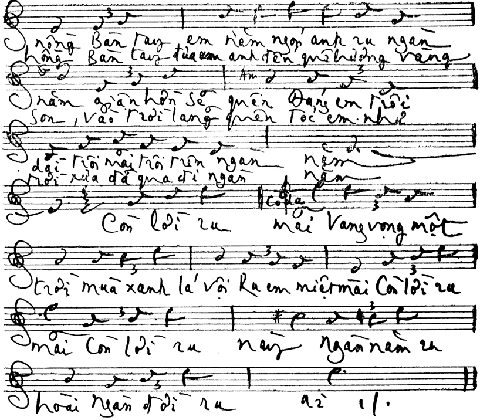 nồng Bàn tay em năm ngón anh ru ngàn
hồng Bàn tay đưa em anh đến quê hương vàng
Am
năm giận hờn sẽ quên Dáng em trôi
son, vào trời lãng quên Tóc em như
dài trôi mãi trôi trên ngàn năm
trời xưa đã qua đi ngàn năm
Coda
Còn lời ru mãi vang vọng một
trời mùa xanh lá vội Ru em miệt mài Còn lời ru
mãi Còn lời ru này ngàn năm ru
hoài ngàn đời ru ai